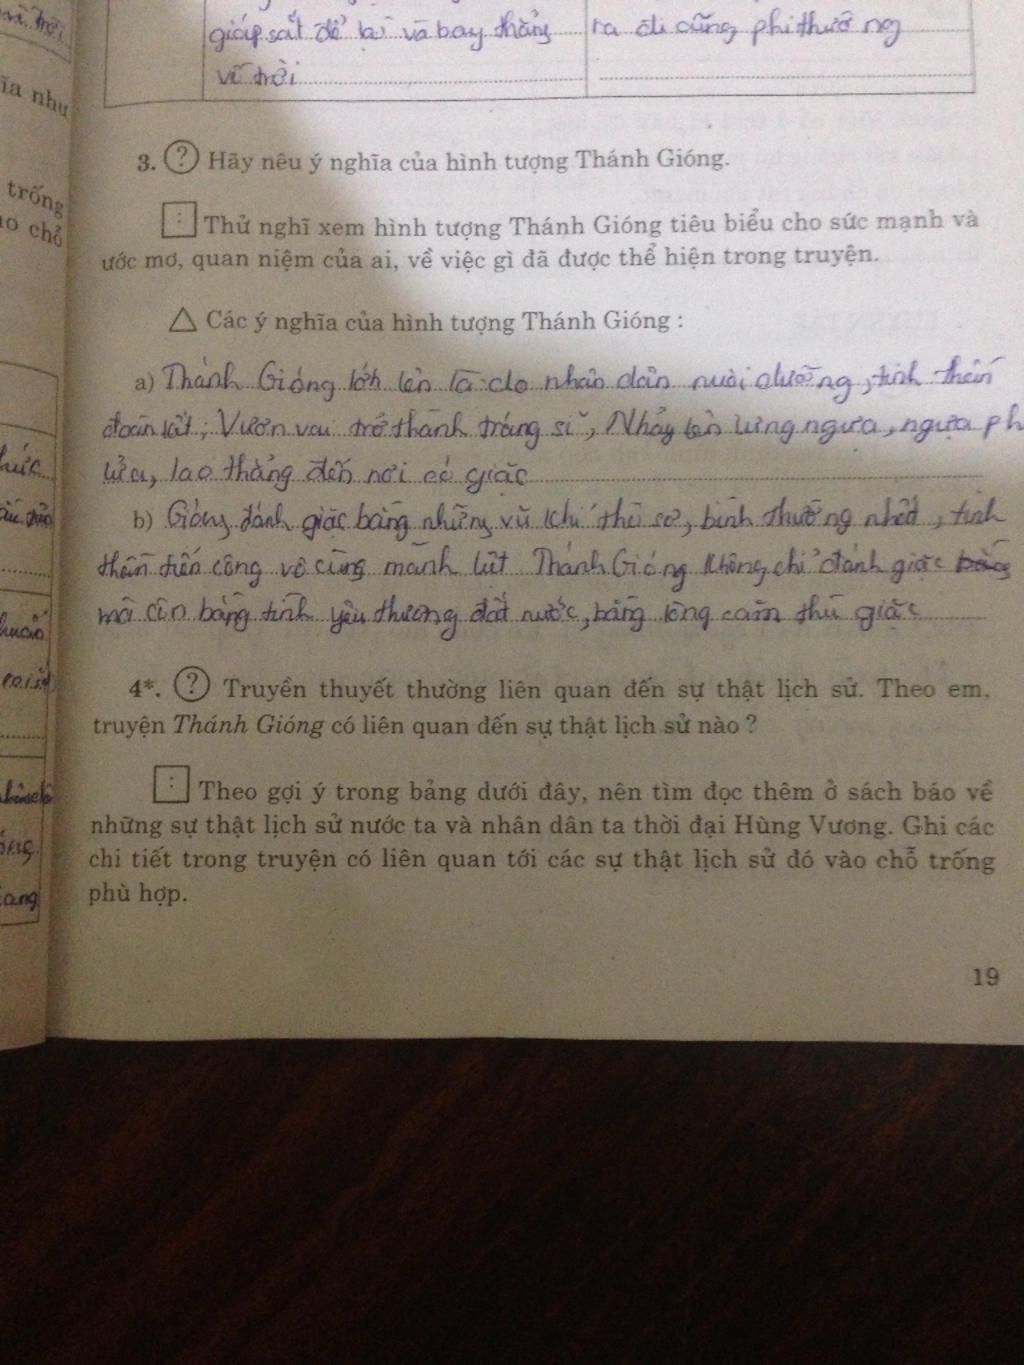 giáp sắt để lại và bay thẳng ra đi cũng phi thường
về trời
ĩa như
trống
3. ? Hãy nêu ý nghĩa của hình tượng Thánh Gióng.
: Thử nghĩ xem hình tượng Thánh Gióng tiêu biểu cho sức mạnh và
ước mơ, quan niệm của ai, về việc gì đã được thể hiện trong truyện.
△ Các ý nghĩa của hình tượng Thánh Gióng :
a) Thánh Gióng lớn lên là do nhân dân nuôi dưỡng, tinh thần
đoàn kết; Vươn vai trở thành tráng sĩ, Nhảy lên lưng ngựa, ngựa ph
lửa, lao thẳng đến nơi có giặc
b) Gióng đánh giặc bằng những vũ khí thô sơ, bình thường nhất, tinh
thần tiến công vô cùng mãnh liệt Thánh Gióng không chỉ đánh giặc
mà còn bằng tình yêu thương đất nước, bằng lòng căm thù giặc
4*. ? Truyền thuyết thường liên quan đến sự thật lịch sử. Theo em,
truyện Thánh Gióng có liên quan đến sự thật lịch sử nào ?
: Theo gợi ý trong bảng dưới đây, nên tìm đọc thêm ở sách báo về
những sự thật lịch sử nước ta và nhân dân ta thời đại Hùng Vương. Ghi các
chi tiết trong truyện có liên quan tới các sự thật lịch sử đó vào chỗ trống
phù hợp.
19